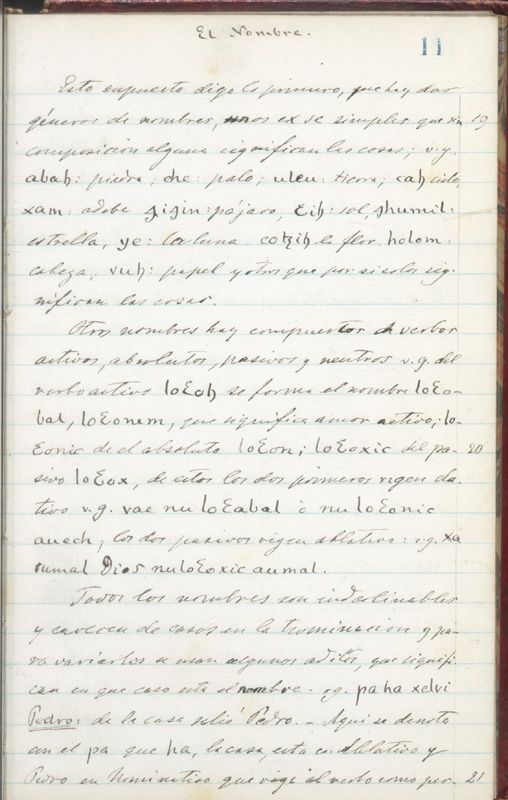 El Nombre.
11
Esto supuesto digo lo primero, que hay dos
géneros de nombres, unos ex se simples que sin 19
composicion alguna significan las cosas; v.g.
abaḩ: piedra; che: palo; uleu: tierra; caḩ cielo,
xam: adobe gigin: pájaro, Ɛiḩ: sol, ghumil:
estrella, ye: la luna cotziḩ la flor, holom:
cabeza, vuḩ: papel y otros que por si solos sig-
nifican las cosas.
Otros nombres hay compuestos de verbos
activos, absolutos, pasivos y neutros v.g. del
verbo activo loƐoḩ se forma el nombre loƐo-
bal, loƐonem, que significa amor activo; lo-
Ɛonic de el absoluto loƐon; loƐoxic del pa- 20
sivo loƐox, de estos los dos primeros rigen da-
tivo v.g. vae nu loƐabal ò nu loƐonic
auech; los dos pasivos rigen ablativo: v.g. xa
rumal Dios nuloƐoxic aumal.
Todos los nombres son indeclinables
y carecen de casos en la terminacion y pa-
ra variarlos se usan algunos aditos, que signifi-
can en que caso esta el nombre. vg. pa ha xelvi
Pedro: de la casa salió Pedro. - Aqui se denota
en el pa que ha, la casa, esta en Ablativo y
Pedro en Nominativo que rige al verbo como per- 21